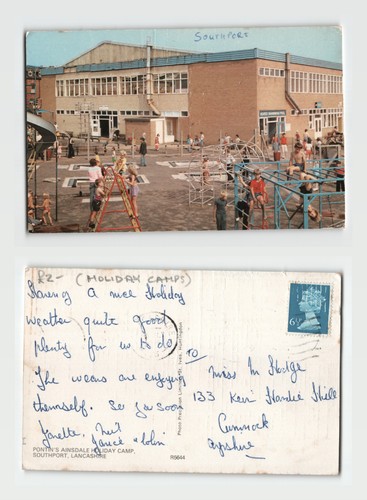 SOUTHPORT
£2- (HOLIDAY CAMPS)
Having A nice Holiday
weather quite good
plenty for us to do
The weans are enjoying
themself. See you soon
Janette, Neil
Janice + Colin
PONTIN'S AINSDALE HOLIDAY CAMP,
SOUTHPORT, LANCASHIRE
R5644
Photo Precision Limited, St. Ives, Huntingdon
6½P
TO
Miss M Hodge
133 Keir Hardie Hill
Cumnock
Ayrshire